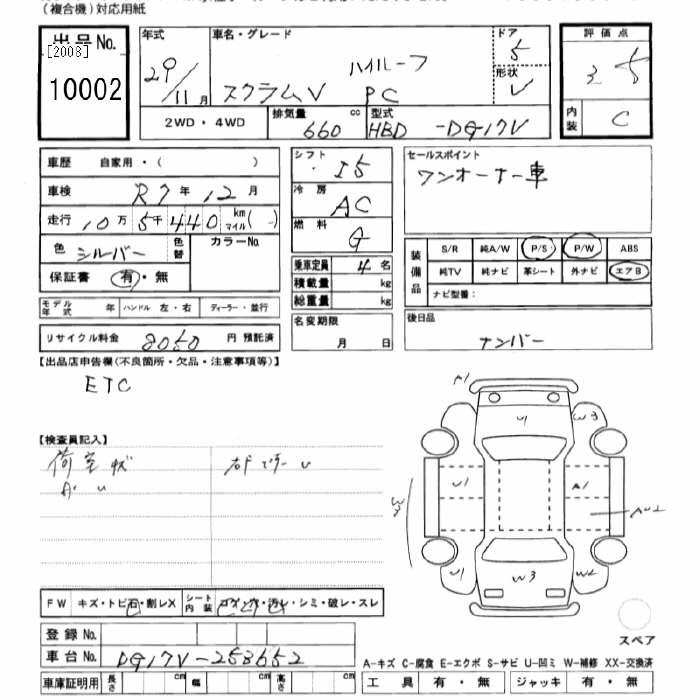 (複合機)対応用紙
出品No.
[2008]
10002
年式 29/11月
車名・グレード ハイルーフ
スクラムV PC
ドア 5
形状 V
評価点 3.5
内装 C
2WD・4WD
排気量 660 cc
型式 HBD-DG17V
車歴 自家用・( )
車検 R7年12月
走行 10万5千440 km マイル( - )
色 シルバー 色替 カラーNo.
保証書 有・無
モデル年式 年 ハンドル 左・右 ディーラー・並行
リサイクル料金 8050 円 預託済
シフト I5
冷房 AC
燃料 G
乗車定員 4名
積載量 kg
総重量 kg
名変期限 月 日
セールスポイント
ワンオーナー車
装備品
S/R 純A/W P/S P/W ABS
純TV 純ナビ 革シート 外ナビ エアB
ナビ型番:
後日品
ナンバー
【出品店申告欄(不良箇所・欠品・注意事項等)】
ETC
【検査員記入】
荷室キズ
A U
FW キズ・トビ石・割レX シート内装 コゲ・穴・汚レ・シミ・破レ・スレ
登録No.
車台No. DG17V-258652
車庫証明用 長さ cm 幅 cm 高さ cm
A1
U1
W3
U1
A1
W2
AU2
U1
W3
W2
スペア
A-キズ C-腐食 E-エクボ S-サビ U-凹ミ W-補修 XX-交換済
工具 有・無 ジャッキ 有・無